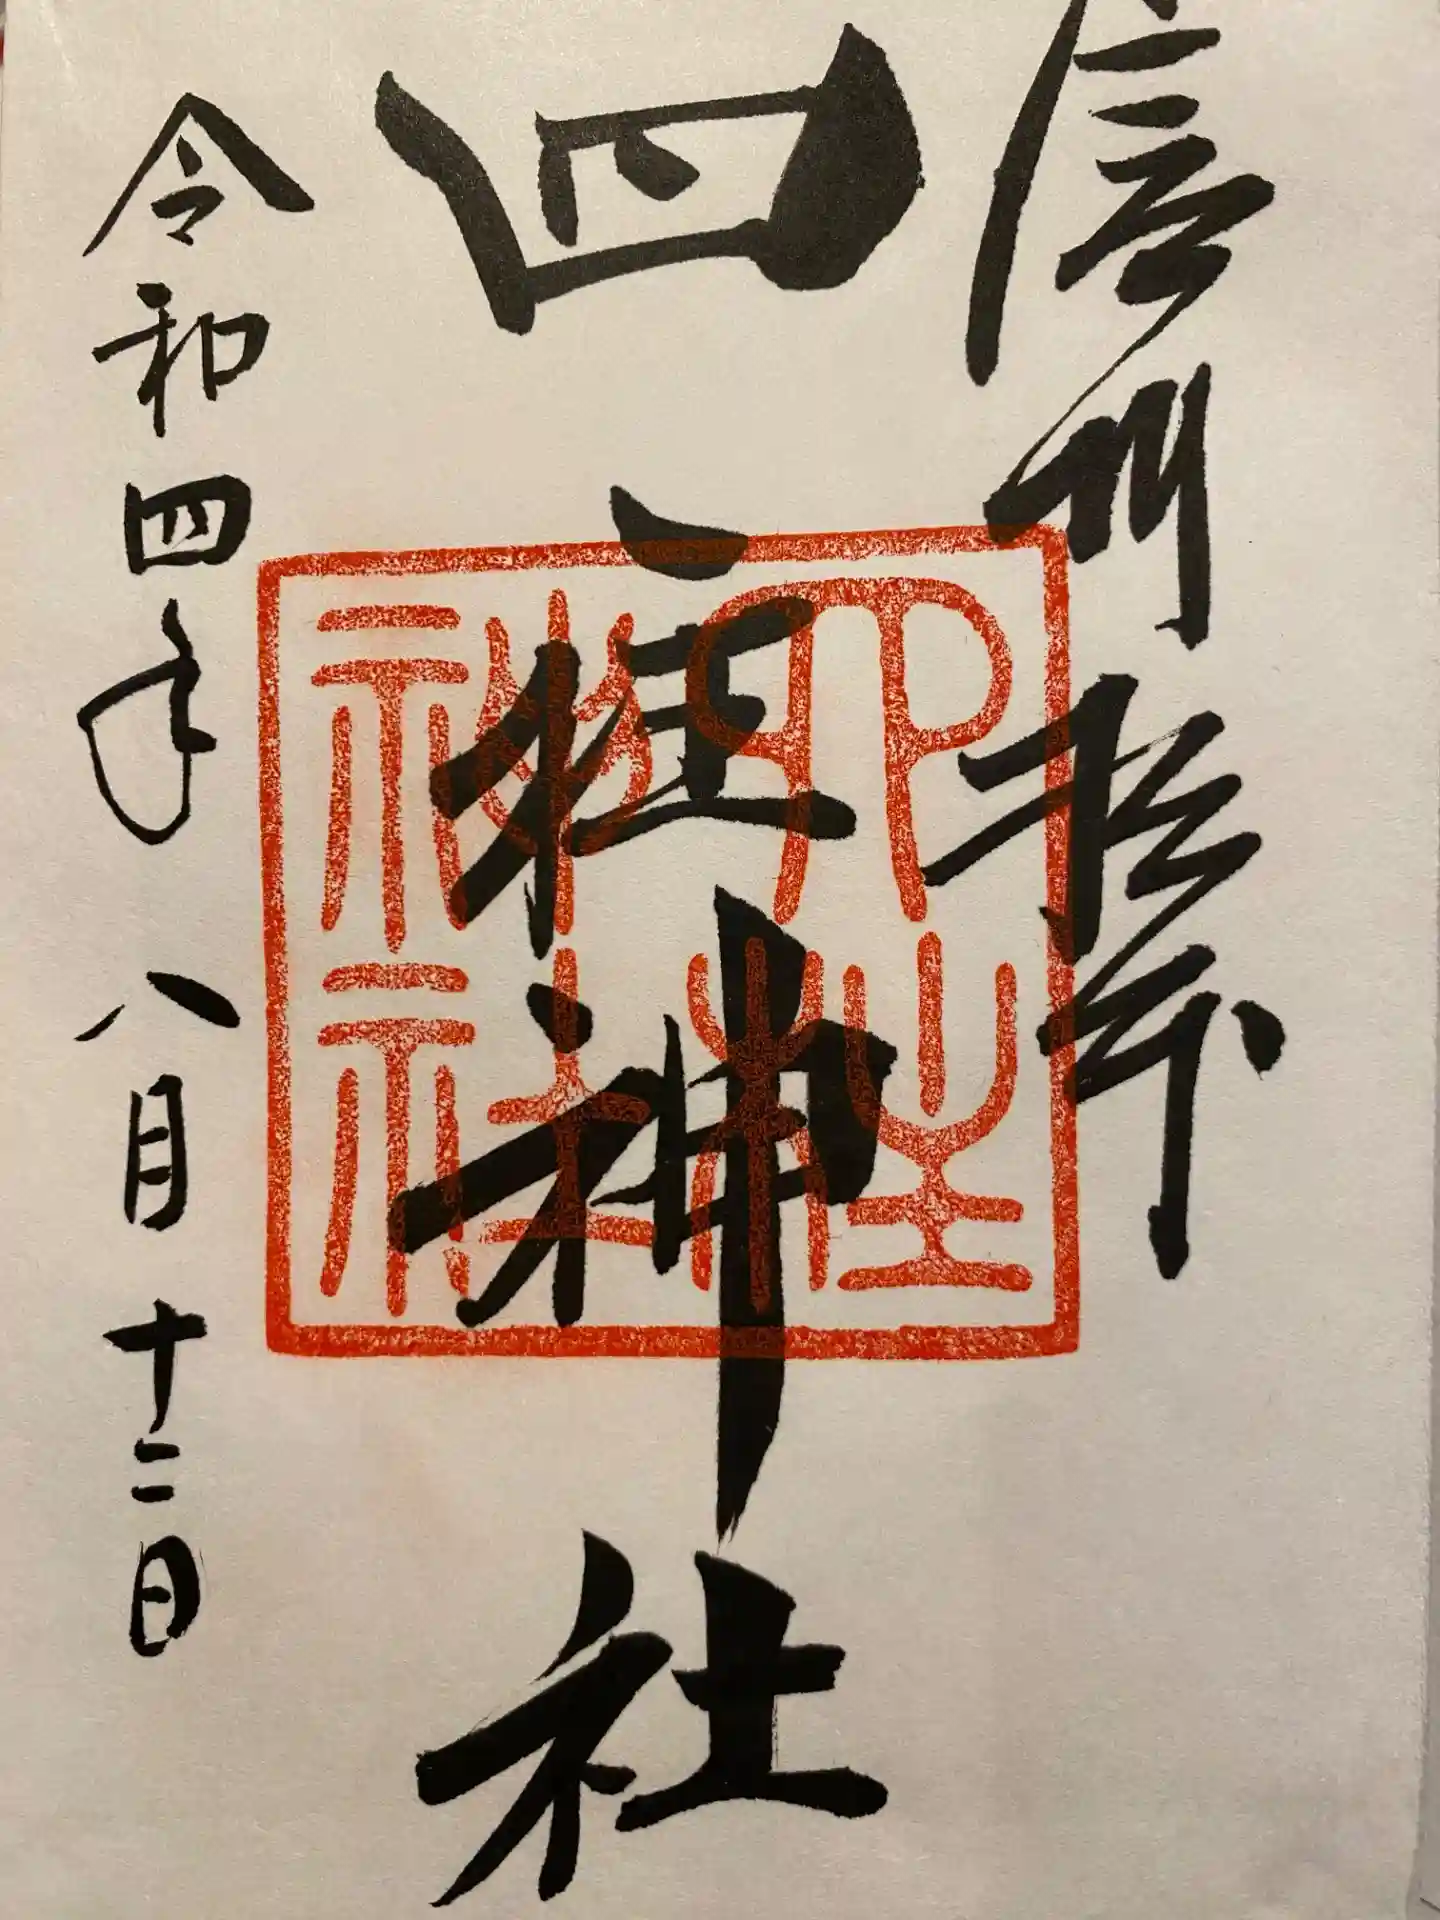 信州松本
四柱神社
令和四年八月十二日
四柱
神社